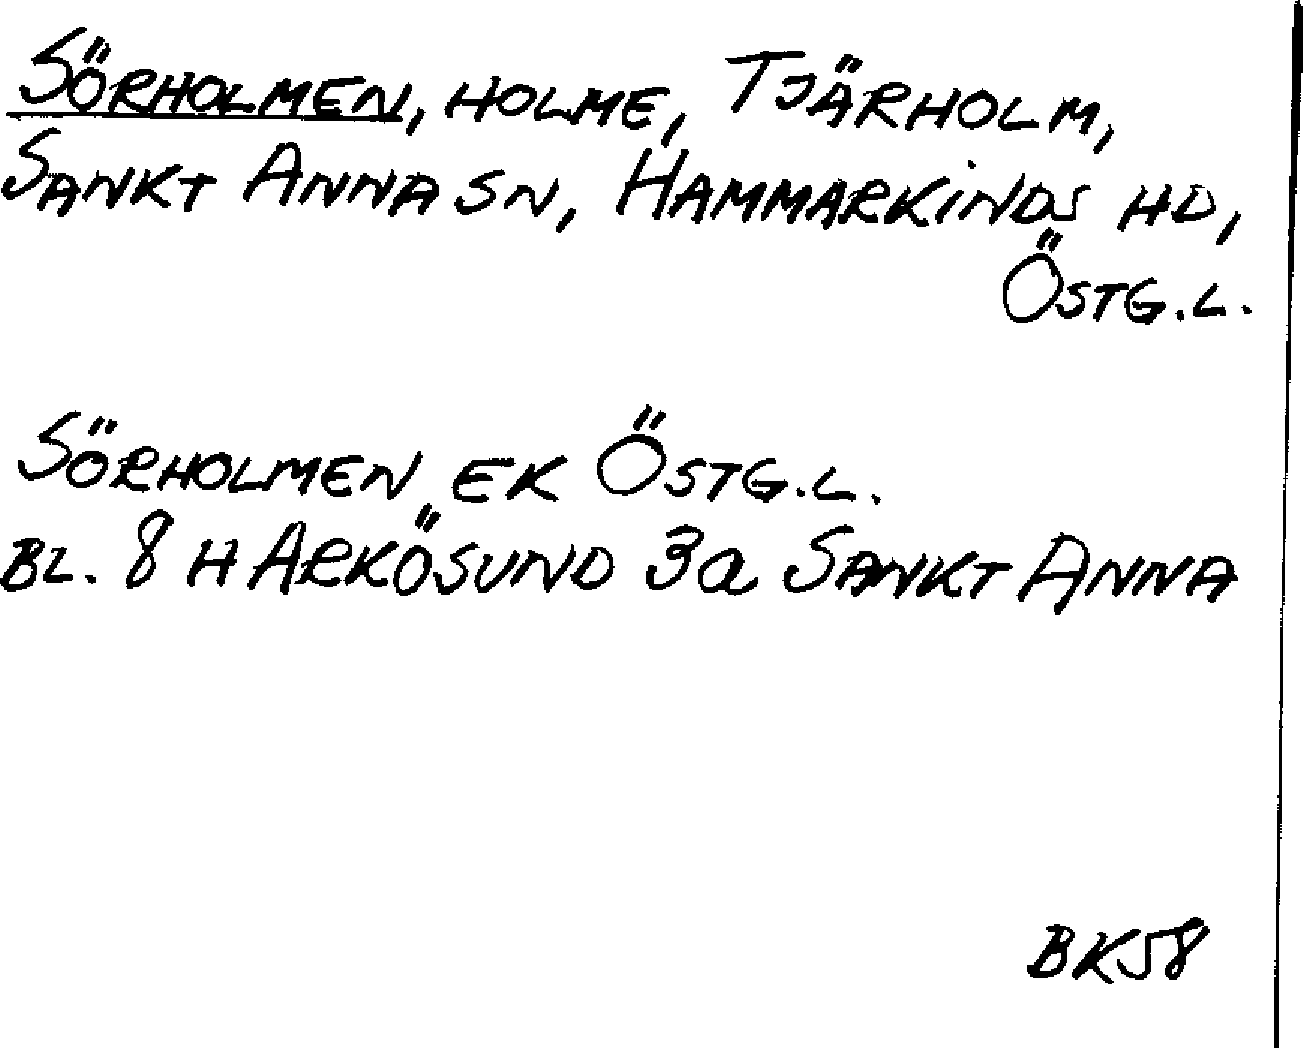 SÖRHOLMEN, HOLME, TJÄRHOLM,
SANKT ANNA SN, HAMMARKiNDS HD,
ÖSTG.L.
SÖRHOLMEN EK ÖSTG.L.
BL. 8 H ARKÖSUND 3a SANKT ANNA
BK58